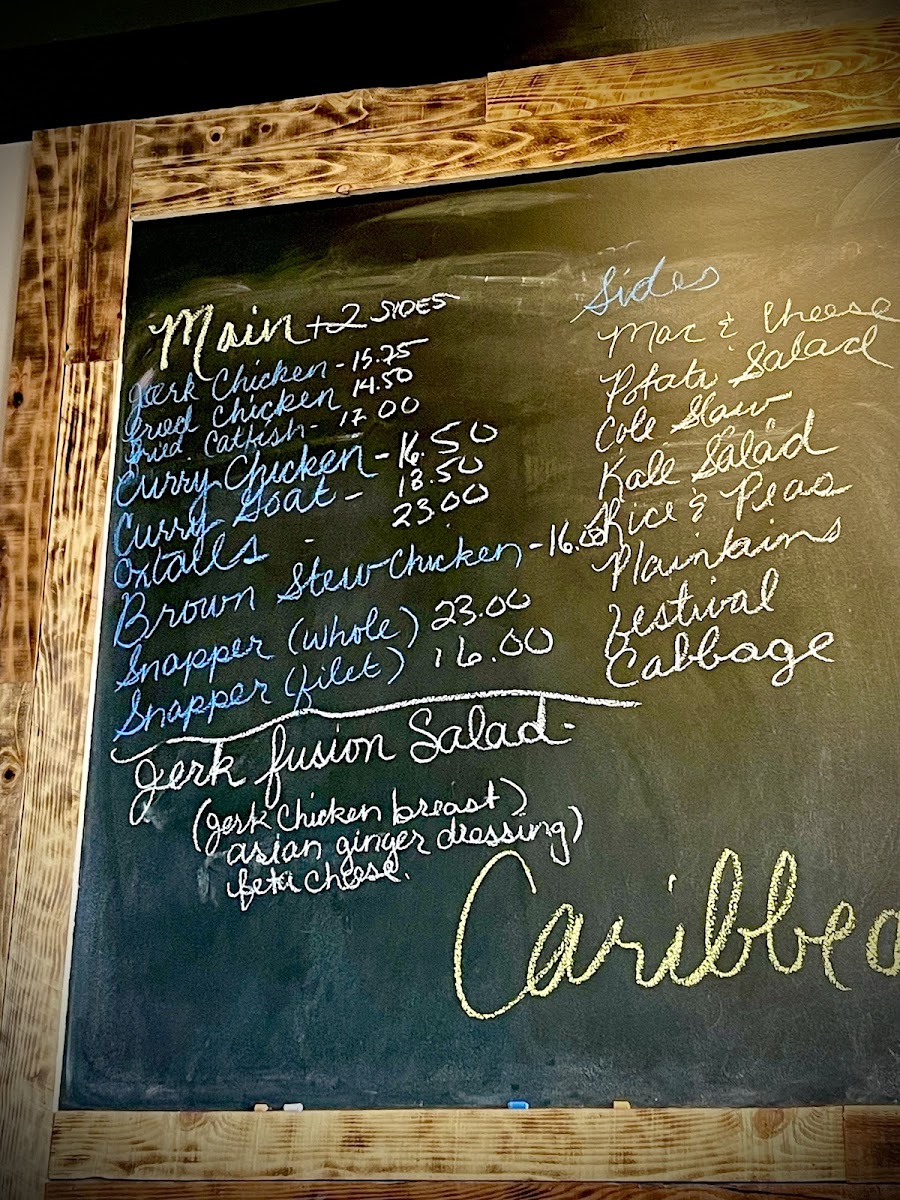 Main + 2 SIDES
Jerk Chicken - 15.25
Fried Chicken 14.50
Fried Catfish - 17.00
Curry Chicken - 16.50
Curry Goat - 18.50
Oxtails - 23.00
Brown Stew Chicken - 16.00
Snapper (whole) 23.00
Snapper (filet) 16.00
Jerk fusion Salad -
(Jerk Chicken breast)
asian ginger dressing)
feta cheese.
Sides
Mac & Cheese
Potato Salad
Cole Slaw
Kale Salad
Rice & Peas
Plaintains
Festival
Cabbage
Caribbea